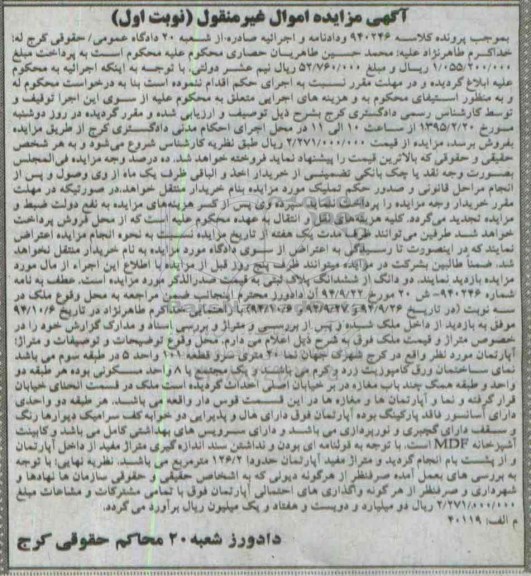 آگهی مزایده اموال غیرمنقول (نوبت اول)
بموجب پرونده کلاسه ۹۴۰۲۴۶ ودادنامه و اجرائیه صادره از شعبه ۲۰ دادگاه عمومی/ حقوقی کرج له:
خداکرم طاهرنژاد علیه: محمد حسین طاهریان حصاری محکوم علیه محکوم است به پرداخت مبلغ
۱/۰۵۵/۲۰۰/۰۰۰ ریال و مبلغ ۵۲/۷۶۰/۰۰۰ ریال نیم عشر دولتی. با توجه به اینکه اجرائیه به محکوم
علیه ابلاغ گردیده و در مهلت مقرر نسبت به اجرای حکم اقدام ننموده است بنا به درخواست محکوم له
و به منظور استیفای محکوم به و هزینه های اجرایی متعلق به محکوم علیه از سوی این اجرا توقیف و
توسط کارشناس رسمی دادگستری کرج بشرح ذیل توصیف و ارزیابی شده و مقرر گردیده در روز دوشنبه
مورخ ۱۳۹۵/۲/۲۰ از ساعت ۱۰ الی ۱۱ در محل اجرای احکام مدنی دادگستری کرج از طریق مزایده
بفروش برسد، مزایده از قیمت ۲/۲۷۱/۰۰۰/۰۰۰ ریال طبق نظریه کارشناس شروع می‌شود و به هر شخص
حقیقی و حقوقی که بالاترین قیمت را پیشنهاد نماید فروخته خواهد شد. ده درصد وجه مزایده فی‌المجلس
بصورت وجه نقد یا چک بانکی تضمینی از خریدار اخذ و الباقی ظرف یک ماه از وی وصول و پس از
انجام مراحل قانونی و صدور حکم تملیک مورد مزایده بنام خریدار منتقل خواهد. در صورتیکه در مهلت
مقرر خریدار وجه مزایده را پرداخت ننماید سپرده وی پس از کسر هزینه‌های مزایده به نفع دولت ضبط و
مزایده تجدید می‌گردد. کلیه هزینه‌های نقل و انتقال به عهده محکوم علیه است که از محل فروش پرداخت
خواهد شد طرفین می‌توانند ظرف مدت یک هفته از تاریخ مزایده نسبت به نحوه انجام مزایده اعتراض
نمایند که در اینصورت تا رسیدگی به اعتراض از سوی دادگاه مورد مزایده به نام خریدار منتقل نخواهد
شد. ضمناً طالبین بشرکت در مزایده میتوانند ظرف پنج روز قبل از مزایده با اطلاع این اجراء از مال مورد
مزایده بازدید نمایند. دو دانگ از ششدانگ پلاک ثبتی به قیمت صدرالذکر مورد مزایده است. عطف به نامه
شماره ۹۴۰۲۴۶- ش ۲۰ مورخ ۹۴/۹/۲۲ آن دادورز محترم اینجانب ضمن مراجعه به محل وقوع ملک در
سه نوبت (در تاریخ ۹۴/۹/۲۶ و ۹۴/۹/۲۷ و ۹۴/۱۰/۶) با احتمائی خداکرم طاهرنژاد در تاریخ ۹۴/۱۰/۶
موفق به بازدید از داخل ملک شده و پس از بررسی و متراژ و بررسی اسناد و مدارک گزارش خود را در
خصوص متراژ و قیمت ملک فوق به شرح ذیل اعلام می دارم. محل وقوع توضیحات و توصیفات و متراژ:
آپارتمان مورد نظر واقع در کرج شهرک جهان نما ۲۰ متری سرو قطعه ۱۰۱ واحد ۵ در طبقه سوم می باشد
نمای ساختمان ورق کامپوزیت زرد و کرم می باشد و یک مجتمع با ۸ واحد مسکونی بوده هر طبقه دو
واحد و طبقه همک چند باب مغازه در بر خیابان اصلی احداث گردیده است ملک در قسمت انحنای خیابان
قرار گرفته و نما و آپارتمان ها و مغازه ها در این قسمت قوس دار واقعه می باشند. هر طبقه دو واحدی
دارای آسانسور فاقد پارکینگ بوده آپارتمان فوق دارای هال و پذیرایی دو خوابه کف سرامیک دیوارها رنگ
و سقف دارای گچبری و نورپردازی می باشد و دارای سرویس های بهداشتی کامل می باشد و کابینت
آشپزخانه MDF است. با توجه به قولنامه ای بودن و نداشتن سند اندازه‌گیری متراژ مفید از داخل آپارتمان
و از پشت بام انجام گردید و متراژ مفید آپارتمان حدوداً ۱۲۶/۲ مترمربع می باشد. نظریه نهایی: با توجه
به بررسی های بعمل آمده صرفنظر از هرگونه دیونی که به اشخاص حقیقی و حقوقی سازمان ها نهادها و
شهرداری و صرفنظر از هر گونه واگذاری های احتمالی آپارتمان فوق با تمامی مشترکات و مشاعات مبلغ
۲/۲۷۱/۰۰۰/۰۰۰ ریال دو میلیارد و دویست و هفتاد و یک میلیون ریال برآورد می گردد.
م الف: ۴۰۱۱۹
دادورز شعبه ۲۰ محاکم حقوقی کرج